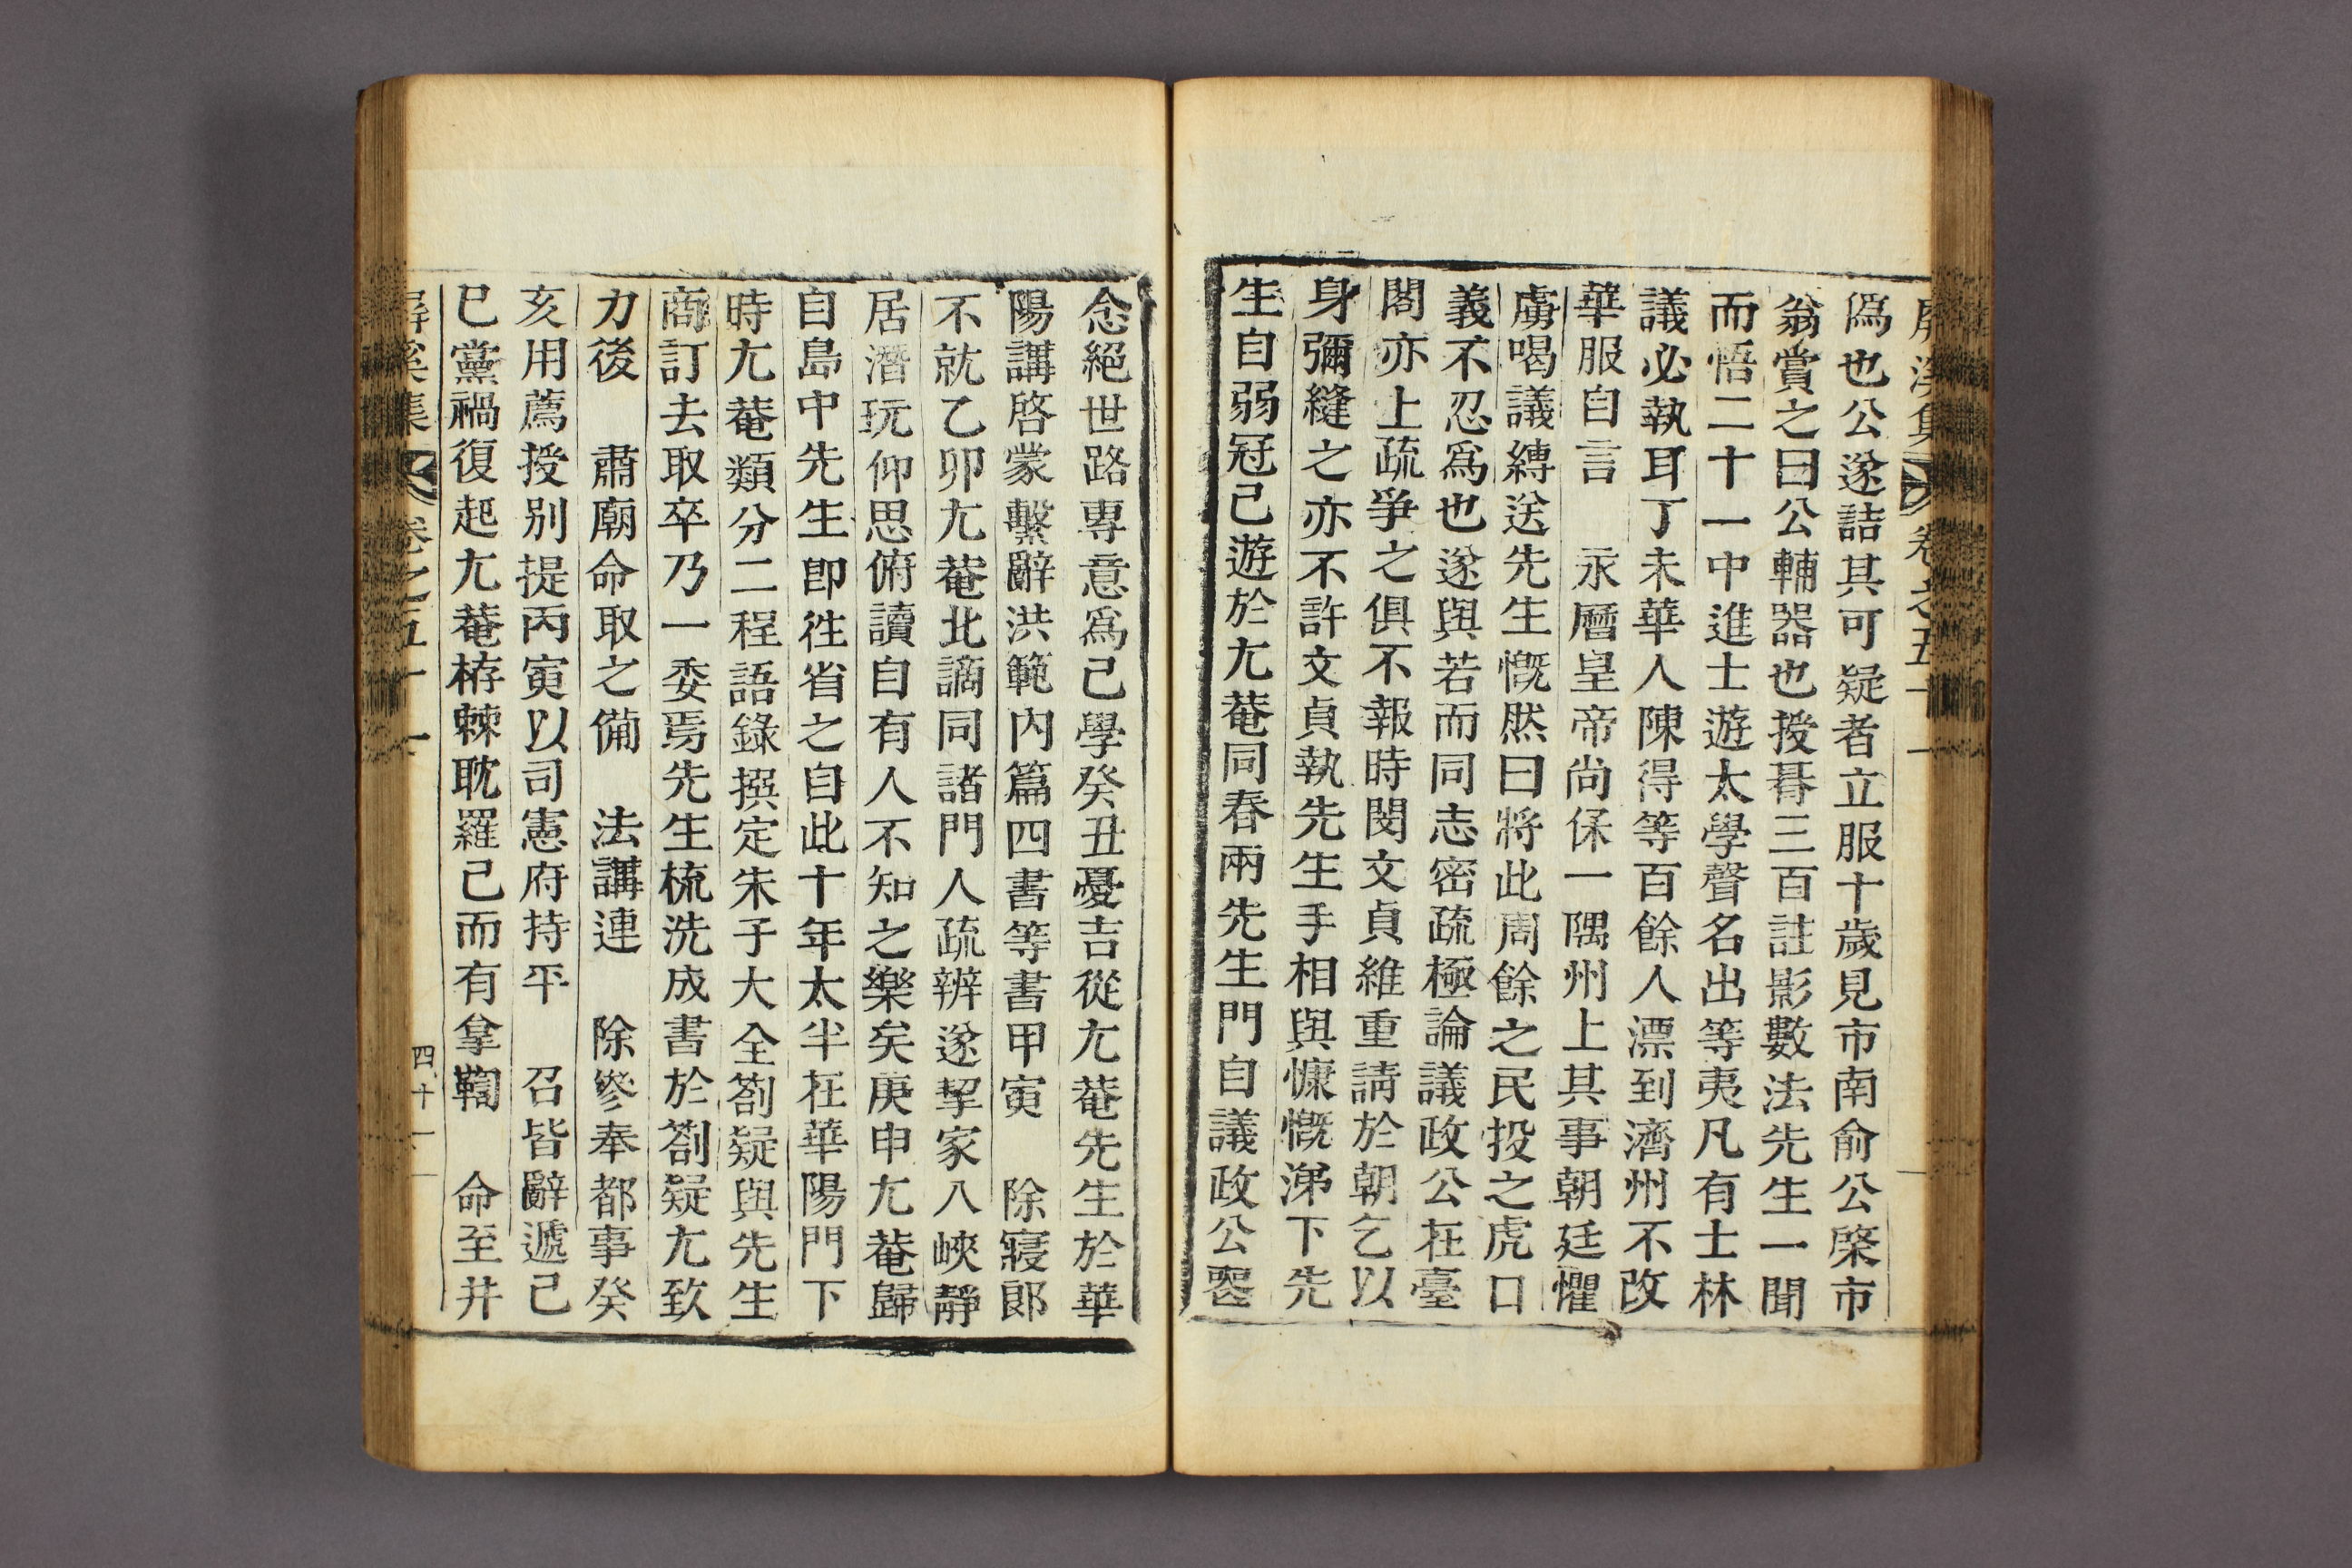 屛溪集 卷之五十一
僞也公遂詰其可疑者立服十歲見市南兪公棨市
翁賞之曰公輔器也授朞三百註影數法先生一聞
而悟二十一中進士遊太學聲名出等夷凡有士林
議必執耳丁未華人陳得等百餘人漂到濟州不改
華服自言 永曆皇帝尙保一隅州上其事朝廷懼
虜喝議縛送先生慨然曰將此周餘之民投之虎口
義不忍爲也遂與若而同志密疏極論議政公在臺
閣亦上疏爭之俱不報時閔文貞維重請於朝乞以
身彌縫之亦不許文貞執先生手相與慷慨涕下先
生自弱冠已遊於尤菴同春兩先生門自議政公罷
念絕世路專意爲己學癸丑憂吉從尤菴先生於華
陽講啓蒙繫辭洪範內篇四書等書甲寅 除寢郞
不就乙卯尤菴北謫同諸門人疏辨遂挈家入峽靜
居潛玩仰思俯讀自有人不知之樂矣庚申尤菴歸
自島中先生卽往省之自此十年太半在華陽門下
時尤菴類分二程語錄撰定朱子大全箚疑與先生
商訂去取卒乃一委焉先生梳洗成書於箚疑尤致
力後 肅廟命取之備 法講連 除參奉都事癸
亥用薦授別提丙寅以司憲府持平 召皆辭遞己
巳黨禍復起尤菴栫棘耽羅已而有拿鞫 命至井
屛溪集 卷之五十一 四十一